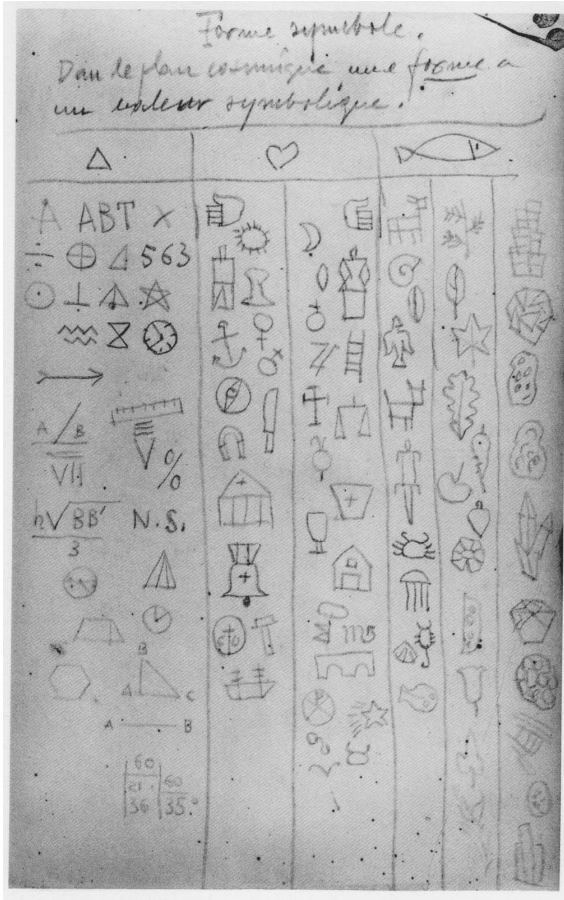 Forme symbole.
Dan le plan cosmique une forme a
un valeur symbolique.
A ABT X
÷ 563
A / B
VII
V %
h√BB' N.S.
3
B
A C
A B
60
21. 60
36 35.°
m